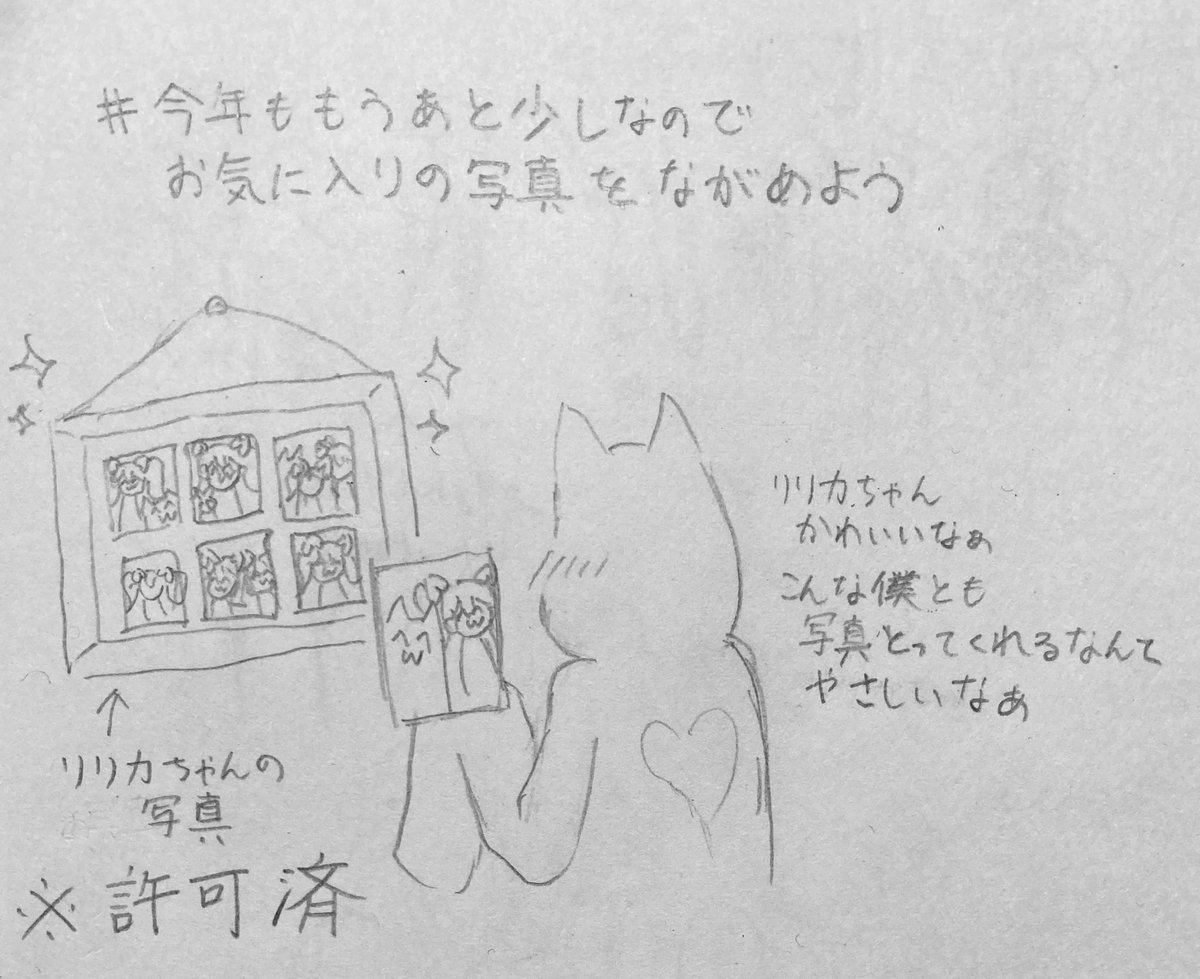 #今年ももうあと少しなので
お気に入りの写真をながめよう
リリカちゃん
かわいいなぁ
こんな僕とも
写真とってくれるなんて
やさしいなぁ
↑
リリカちゃんの
写真
※許可済